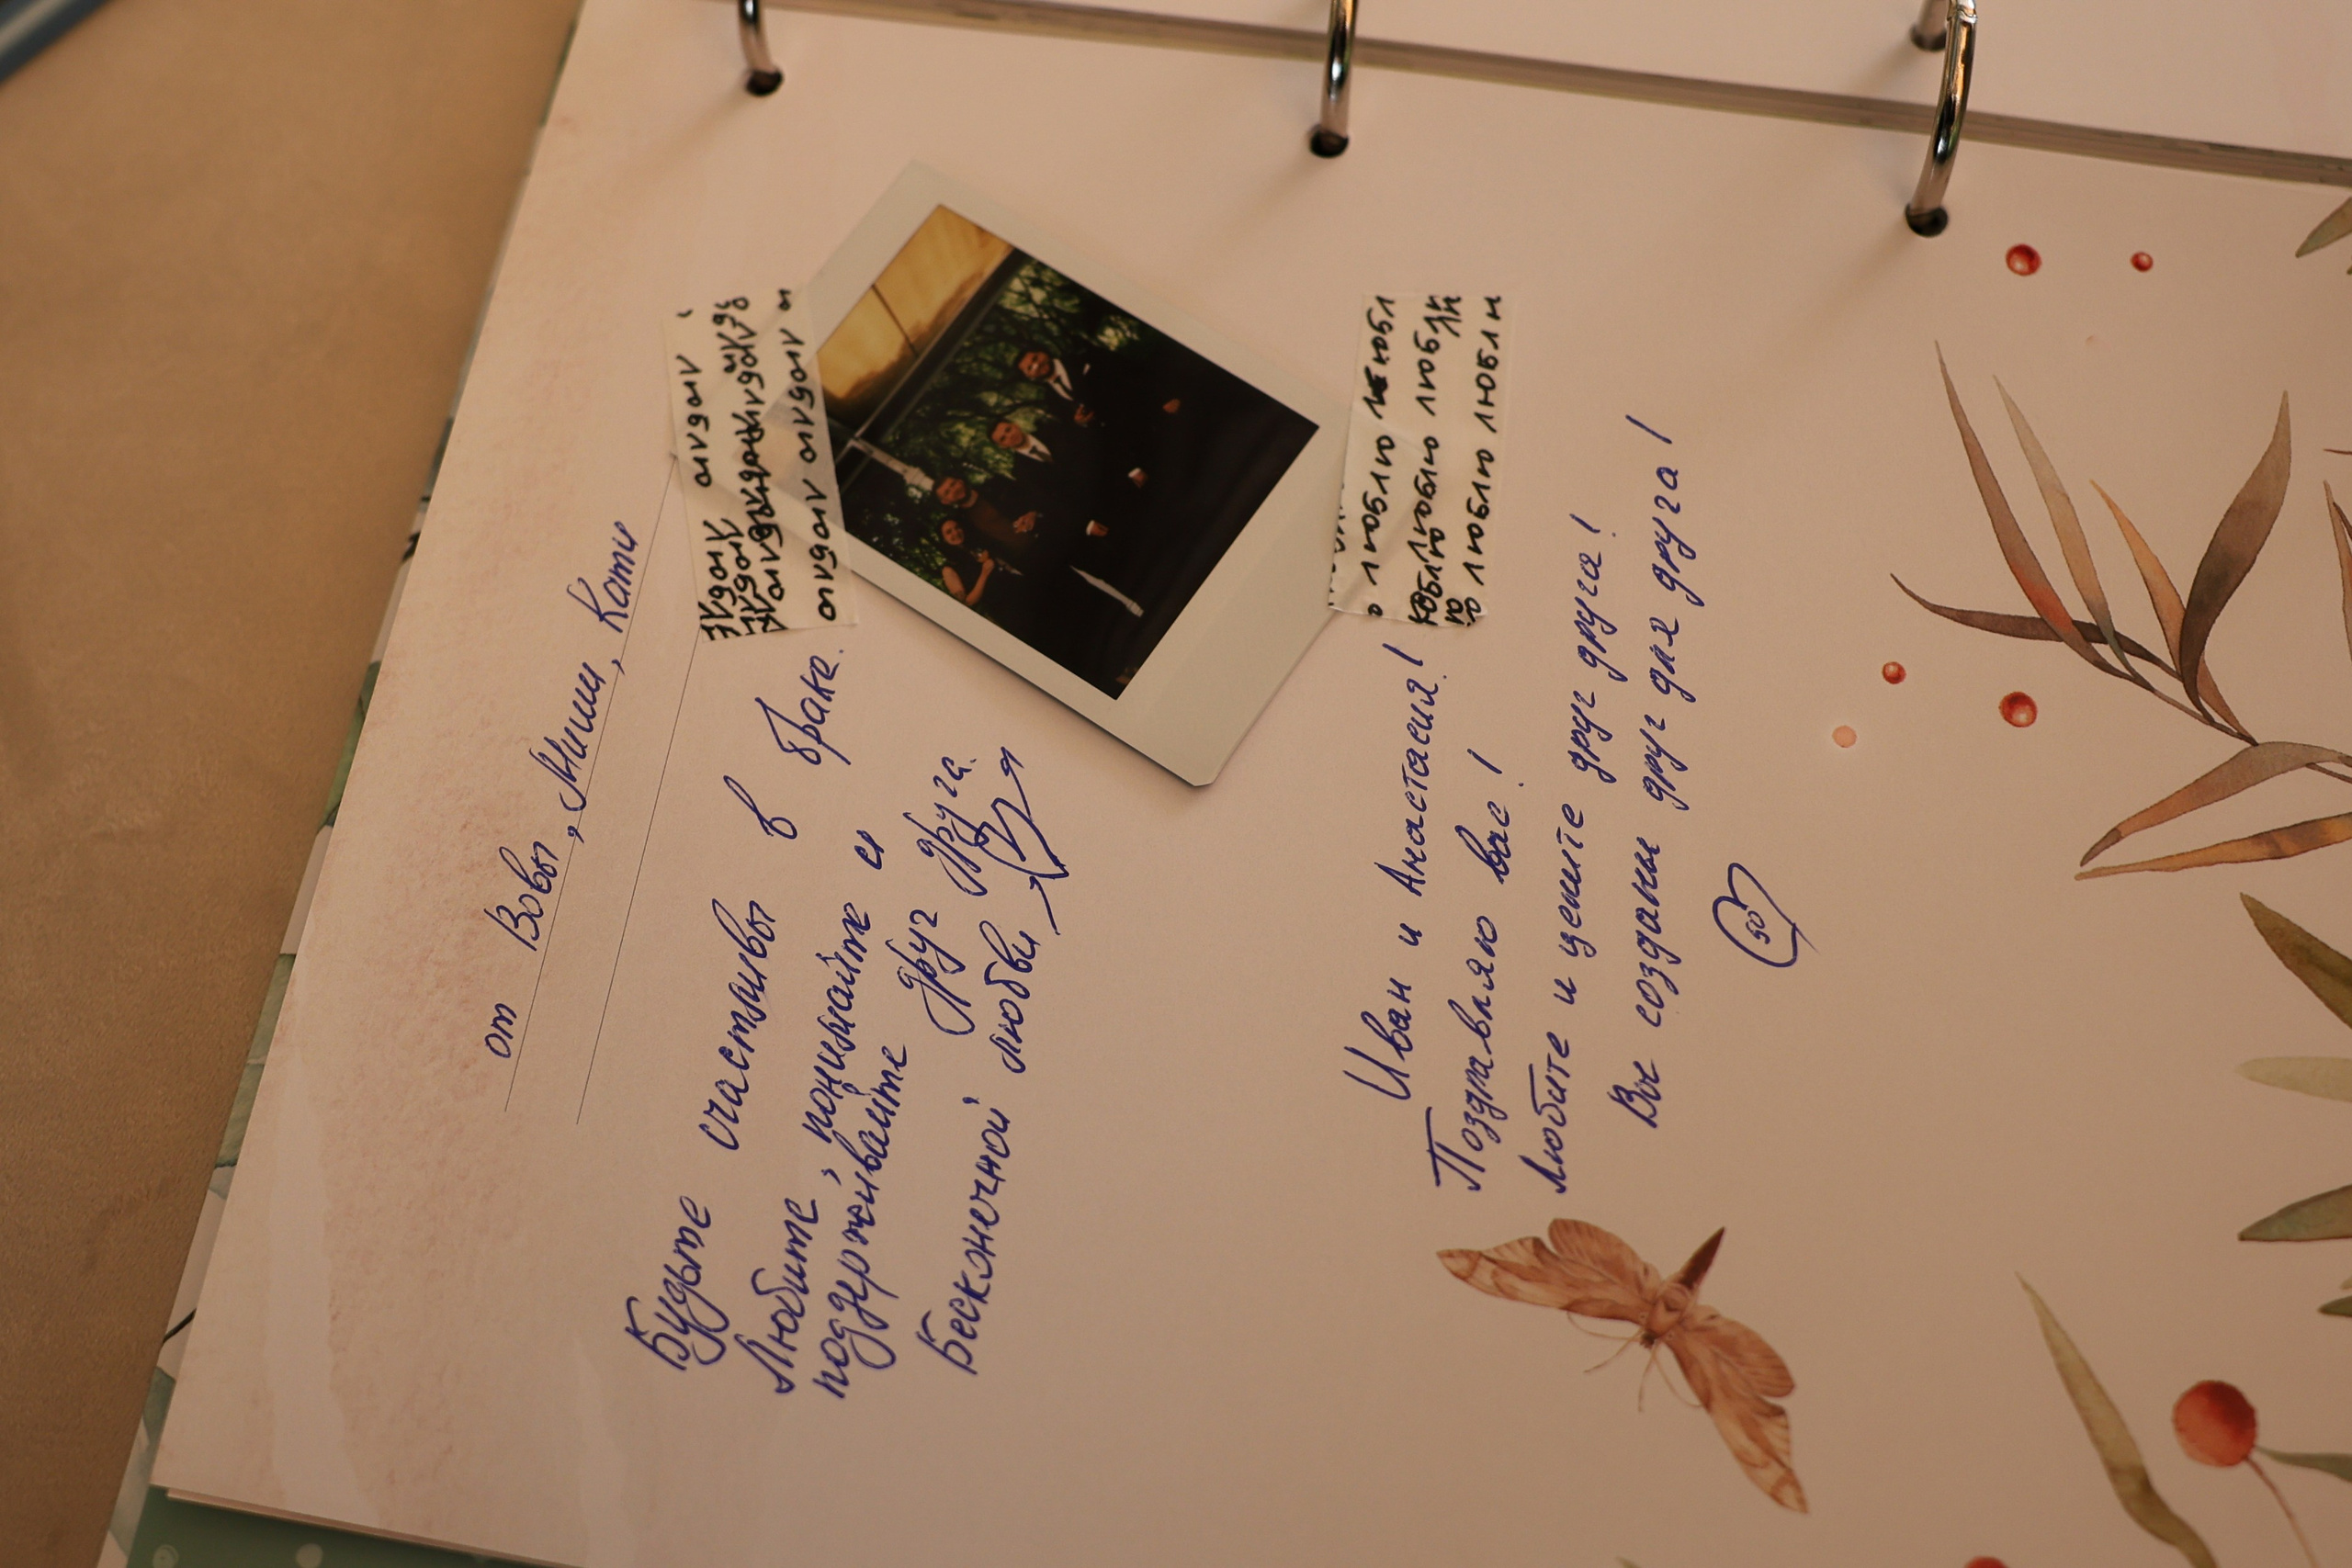 от Вовы, Миши, Кати
Будьте счастливы в браке.
Любите, понимайте и
поддерживайте друг друга.
Бесконечной любви
Иван и Анастасия!
Поздравляю вас!
Любите и цените друг друга!
Вы созданы друг для друга!
люблю люблю
люблю люблю
люблю люблю
люблю люблю
люблю люблю